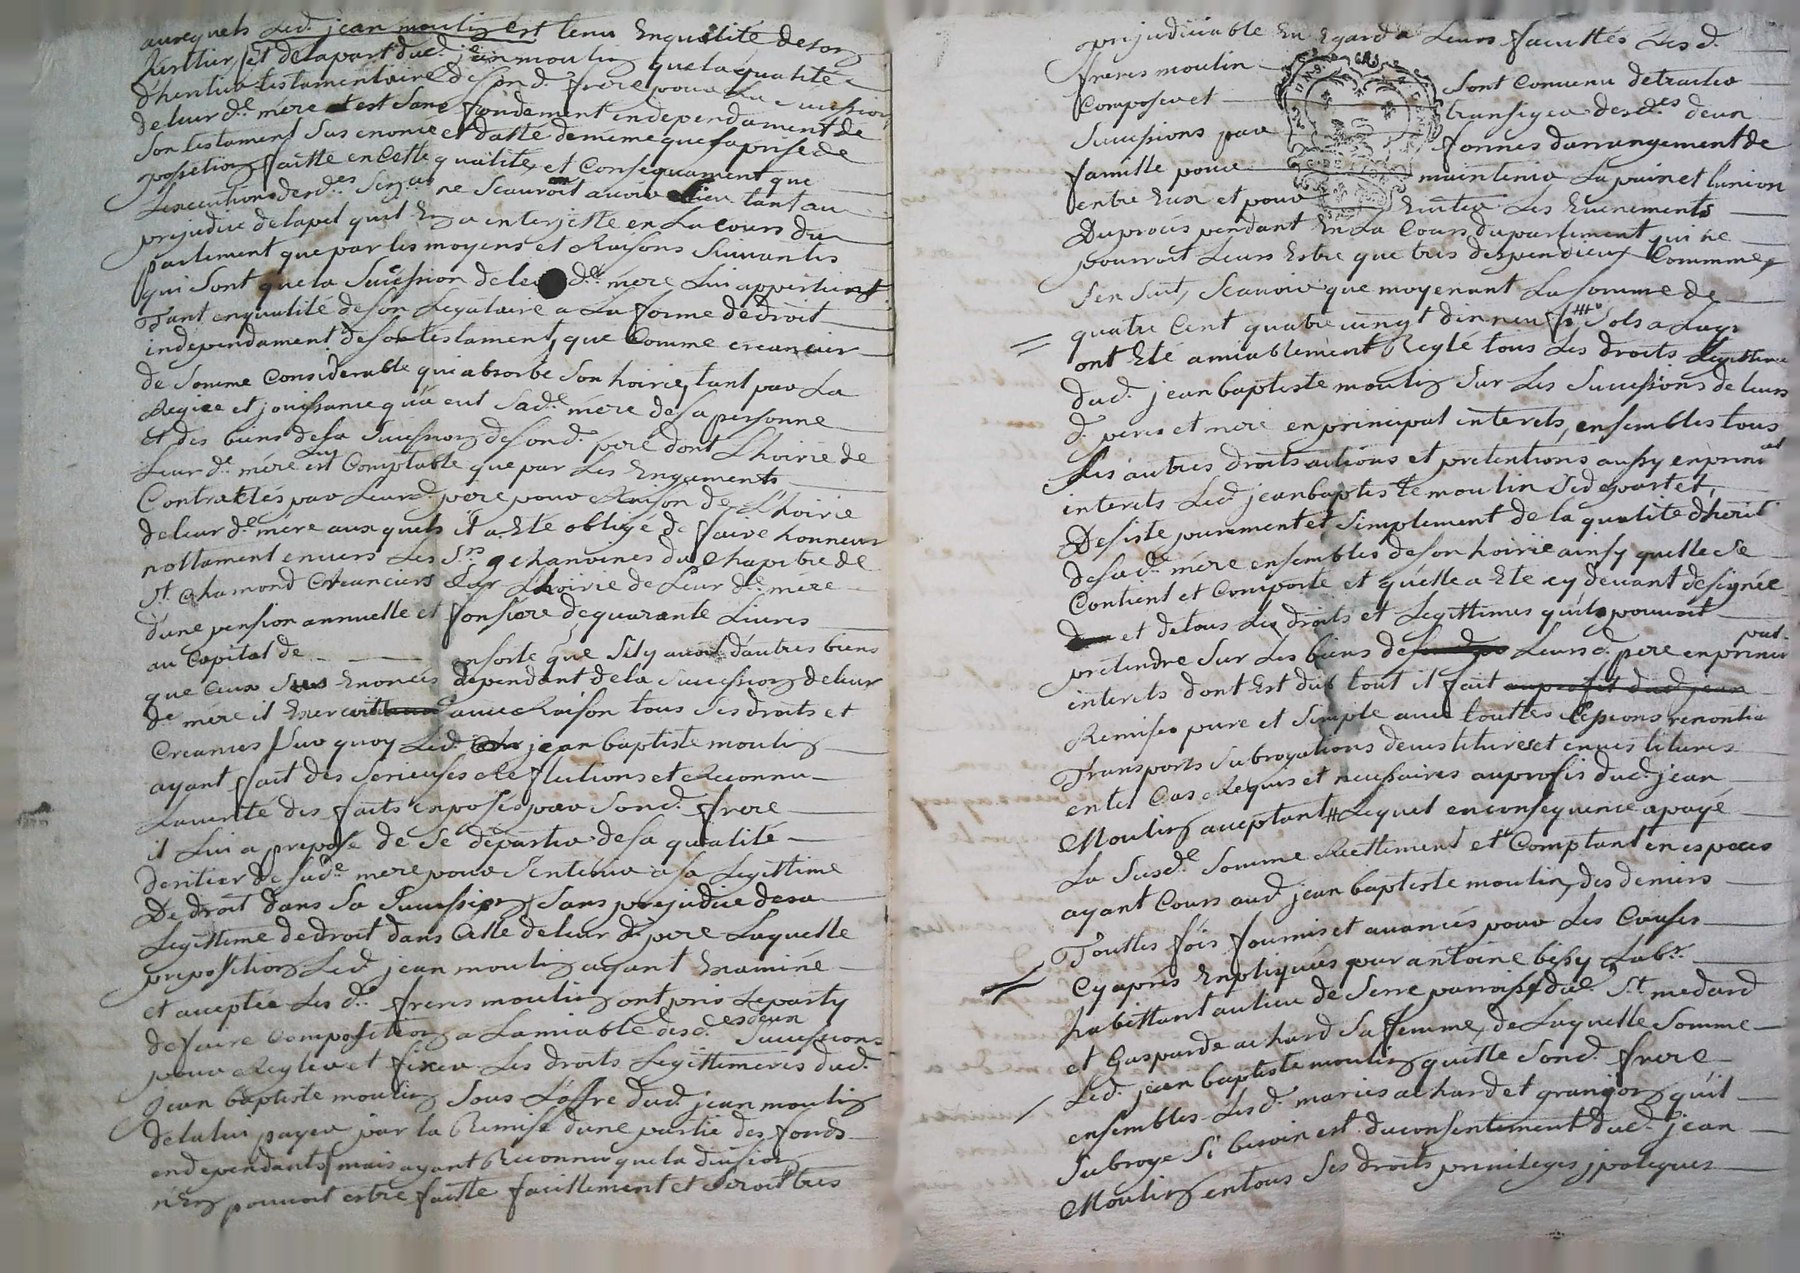 auxquels Led. jean moulin est tenu En qualité de son
heritier, et de la part dud. jean moulin que la qualité
d'heritier testamentaire de son d. frere pour La succession
de leur de. mere est sans fondement independament de
son testament sus enoncé et datté de meme que sa prise de
possession faitte en Cette qualité, et Conséquament que
L'execution des des. ne scauroit avoir Lieu tant au
prejudice de lapel quil En a interjetté en La Cours du
parlement que par les moyens et Raisons Suivantes
qui Sont que la Succession de leur de. mere Lui appartient
Tant en qualité de son Legataire a La forme de droit
independament de son testament, que Comme creancier
de Somme Considerable qui absorbe Son hoirie, tant par La
Regice et jouissance qu'a eut Sa de. mere de sa personne
et des biens de la Succession de son d. pere dont L'hoirie de
Leur de. mere est Comptable que par Les Engagements
Contractés par Leur d. pere pour Raison de L'hoirie
de leur de. mere auxquels il a Eté obligé de faire honneur
nottament envers Les Srs. chanoines du Chapitre de
St. Chamond Creanciers Sur L'hoirie de Leur de. mere
d'une pension annuelle et fonsiere de quarante Livres
au Capital de ensorte que S'il y avoit d'autres biens
que Ceux Sus Enoncés dependant de la Succession de leur
de. mere il Exerceroit avec Raison tous Ses droits et
Creances Sur quoy Led. jean baptiste moulin
ayant fait des Serieuses Reflections et Reconnu
La verité des faits exposés par Son d. frere
il Lui a proposé de Se départir de Sa qualité
d'eritier de Sa de. mere pour S'en tenir a Sa Legittime
De droit dans Sa Succession, Sans prejudice de sa
Legittime de droit dans Celle de leur d. pere Laquelle
proposition Led. jean moulin ayant Examiné
et acceptée Les d. freres moulin ont pris Le party
de faire Composition a L'amiable des d. es deux Successions
pour Regler et fixer Les droits Legittimeres dud.
Jean baptiste moulin Sous L'offre dud. jean moulin
de la lui payer par la Remise d'une partie des fonds
en dependants, mais ayant Reconnu que la division
n'En pouvoit estre faitte facillement et Seroit tres
prejudiciable En Egard a Leurs facultés Les d.
freres moulin Sont Convenu de traiter
Composer et transiger des des. deux
Successions par formes d'arrangement de
famille pour maintenir La paix et l'union
entre Eux et pour Eviter Les Evenements
Du procés pendant En La Cours du parlement qui ne
pourroit Leurs Estre que tres dispendieux Commme
S'en Suit, Scavoir que moyenant La Somme de
quatre Cent quatre vingt dix neuf # Sols a Laq.
ont Eté amiablement Reglé tous Les droits Legittime
dud. jean baptiste moulin Sur Les Successions de leurs
d. peres et mere en principal interets, ensembles tous
Les autres droits actions et pretentions aussy en principal
interets Led. jean baptiste moulin Se depart et
Desiste purement et Simplement de la qualité d'herit.
de Sa de. mere ensembles de Son hoirie ainsy quelle Se
Contient et Comporte et qu'elle a Eté cy devant designée
et de tous Les droits et Legittimes qu'il pouvoit
pretendre Sur Les biens de Leurs d. pere en principal
interets dont Est du tout il fait
Remises pure et Simple avec touttes Cessions renontia
Transports Subrogations devestitures et envestitures
en tel Cas Requis et necessaires au profis dud. jean
Moulin acceptant # Lequel en consequence a payé
La Susde. Somme Reellement et Comptant en especes
ayant Cours aud. jean baptiste moulin, des deniers
Touttes fois fournis et avancés pour Les Causes
Cy aprés Expliquées par antoine Labr.
habittant au lieu de Serre parroisse dud. St. medard
et Gasparde achard Sa femme, de Laquelle Somme
Led. jean baptiste moulin quitte Son d. frere
ensembles Les d. mariés achard et granjon qu'il
Subroge Si besoin est du consentement dud. jean
Moulin en tous Ses droits privileges ypoteques